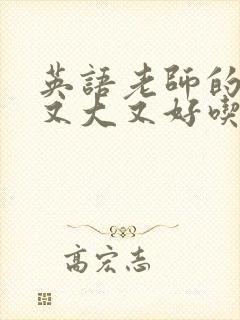 英語老師的
又大又好喫
高宏志